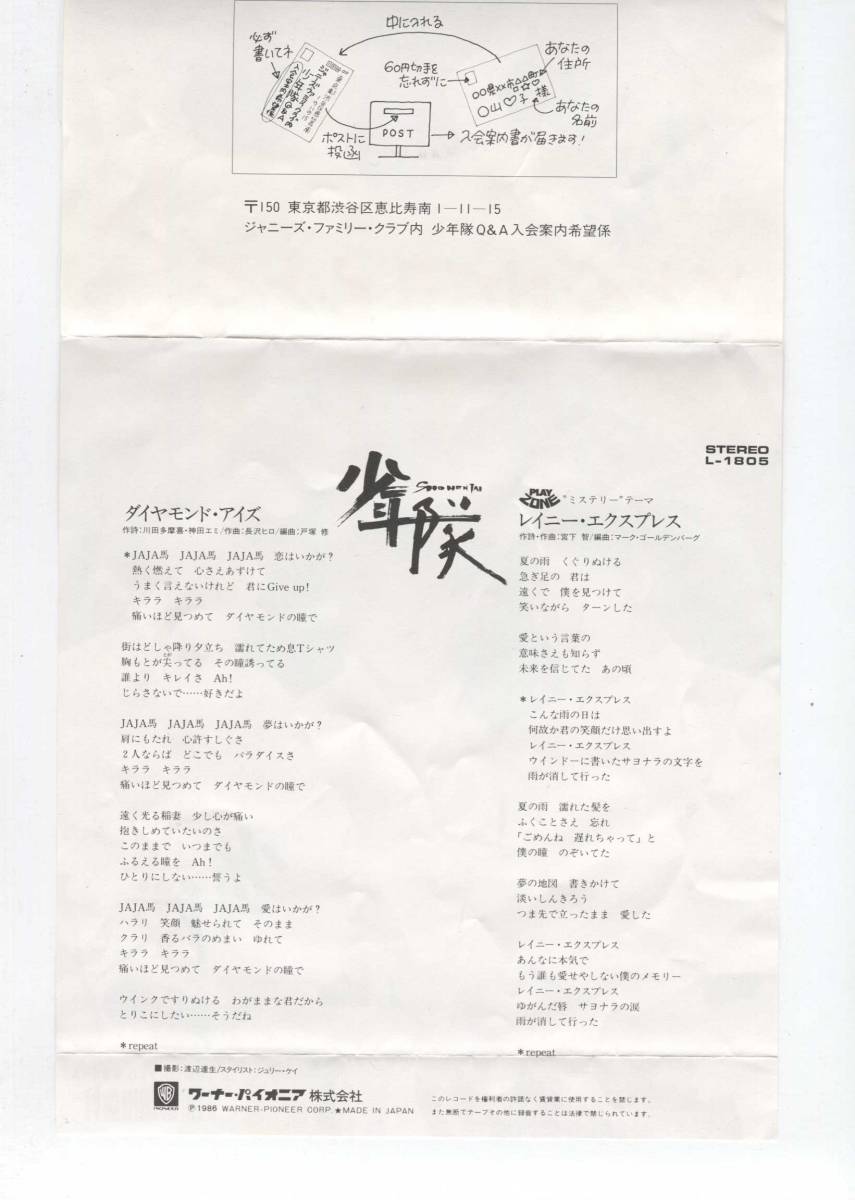 中に入れる
必ず
書いてネ
60円切手を
忘れずに
あなたの
住所
〇〇県××市△△町
〇山♡子 様
あなたの
名前
ポストに
投函
POST
入会案内書が届きます!
〒150 東京都渋谷区恵比寿南1―11―15
ジャニーズ・ファミリー・クラブ内 少年隊Q&A入会案内希望係
STEREO
L-1805
少年隊
SHONENTAI
ダイヤモンド・アイズ
作詩:川田多摩喜・神田エミ/作曲:長沢ヒロ/編曲:戸塚 修
*JAJA馬 JAJA馬 JAJA馬 恋はいかが?
熱く燃えて 心さえあずけて
うまく言えないけれど 君にGive up!
キララ キララ
痛いほど見つめて ダイヤモンドの瞳で
街はどしゃ降り夕立ち 濡れてため息Tシャツ
胸もとが尖ってる その瞳誘ってる
誰より キレイさ Ah!
じらさないで……好きだよ
JAJA馬 JAJA馬 JAJA馬 夢はいかが?
肩にもたれ 心許すしぐさ
2人ならば どこでも パラダイスさ
キララ キララ
痛いほど見つめて ダイヤモンドの瞳で
遠く光る稲妻 少し心が痛い
抱きしめていたいのさ
このままで いつまでも
ふるえる瞳を Ah!
ひとりにしない……誓うよ
JAJA馬 JAJA馬 JAJA馬 愛はいかが?
ハラリ 笑顔 魅せられて そのまま
クラリ 香るバラのめまい ゆれて
キララ キララ
痛いほど見つめて ダイヤモンドの瞳で
ウインクですりぬける わがままな君だから
とりこにしたい……そうだね
*repeat
PLAY ZONE "ミステリー"テーマ
レイニー・エクスプレス
作詩・作曲:宮下 智/編曲:マーク・ゴールデンバーグ
夏の雨 くぐりぬける
急ぎ足の 君は
遠くで 僕を見つけて
笑いながら ターンした
愛という言葉の
意味さえも知らず
未来を信じてた あの頃
*レイニー・エクスプレス
こんな雨の日は
何故か君の笑顔だけ思い出すよ
レイニー・エクスプレス
ウインドーに書いたサヨナラの文字を
雨が消して行った
夏の雨 濡れた髪を
ふくことさえ 忘れ
「ごめんね 遅れちゃって」と
僕の瞳 のぞいてた
夢の地図 書きかけて
淡いしんきろう
つま先で立ったまま 愛した
レイニー・エクスプレス
あんなに本気で
もう誰も愛せやしない僕のメモリー
レイニー・エクスプレス
ゆがんだ唇 サヨナラの涙
雨が消して行った
*repeat
■撮影:渡辺達生/スタイリスト:ジュリー・ケイ
WB PIONEER ワーナー・パイオニア株式会社
Ⓟ1986 WARNER-PIONEER CORP. ★MADE IN JAPAN
このレコードを権利者の許諾なく賃貸業に使用することを禁じます。
また無断でテープその他に録音することは法律で禁じられています。